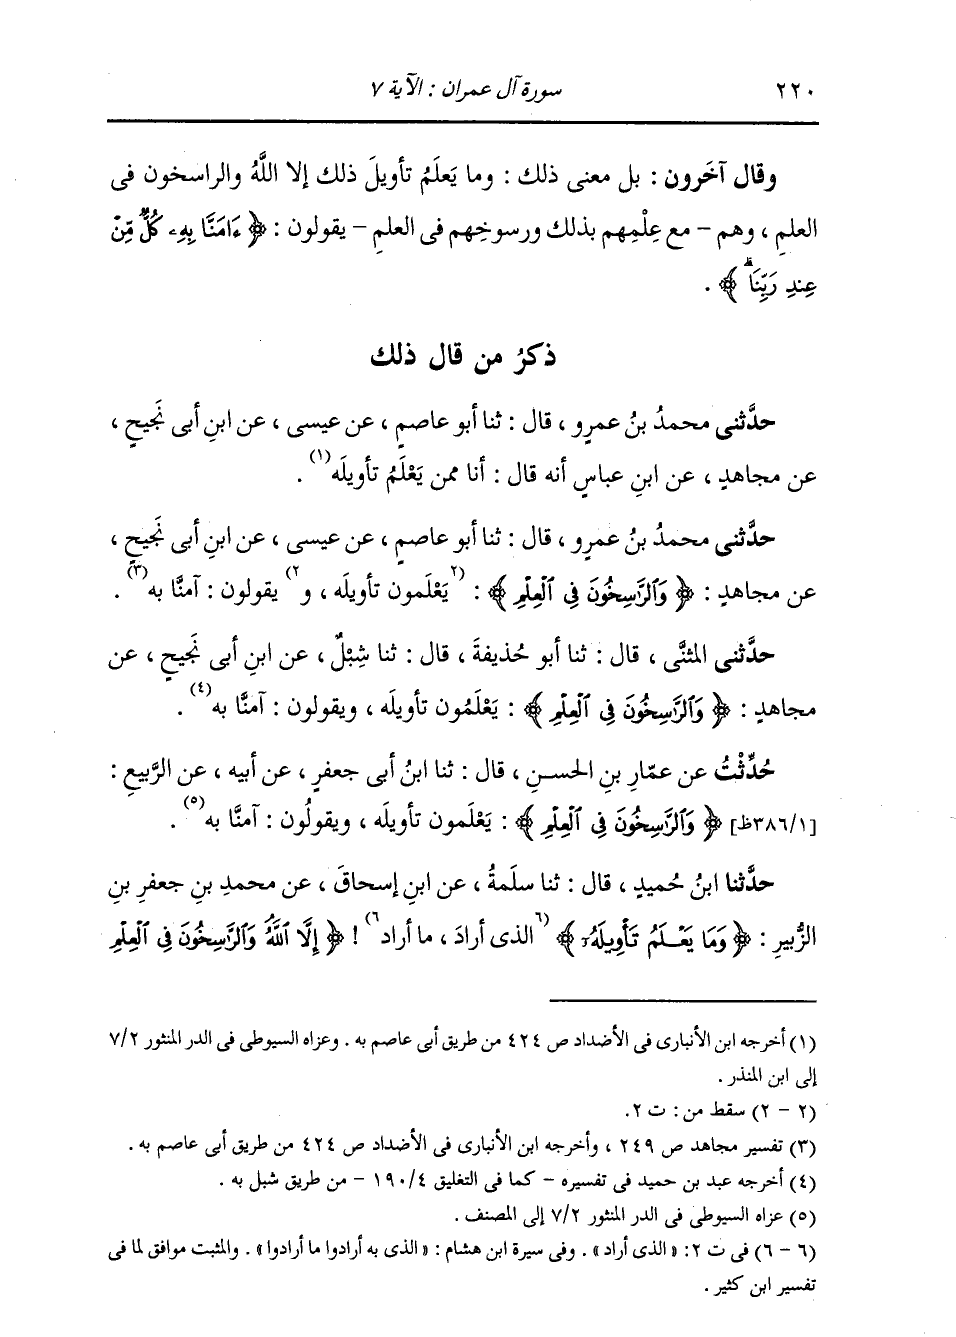 ٢٢٠ سورة آل عمران : الآية ٧
وقال آخَرون : بل معنى ذلك : وما يَعلَمُ تأويلَ ذلك إلا اللَّهُ والراسخون فى
العلمِ ، وهم – مع عِلْمِهم بذلك ورسوخِهم فى العلمِ – يقولون : ﴿ ءَامَنَّا بِهِۦ كُلٌّ مِّنْ
عِندِ رَبِّنَاۗ ﴾ .
ذكرُ من قال ذلك
حدَّثنى محمدُ بنُ عمرٍو ، قال : ثنا أبو عاصمٍ ، عن عيسى ، عن ابنِ أبى نَجيحٍ ،
عن مجاهدٍ ، عن ابنِ عباسٍ أنه قال : أنا ممن يَعْلَمُ تأويلَه (١) .
حدَّثنى محمدُ بنُ عمرٍو ، قال : ثنا أبو عاصمٍ ، عن عيسى ، عن ابنِ أبى نَجيحٍ ،
عن مجاهدٍ : ﴿ وَٱلرَّٰسِخُونَ فِى ٱلْعِلْمِ ﴾ : (٢ يَعْلَمون تأويلَه ، و ٢) يقولون : آمنَّا به (٣) .
حدَّثنى المثنَّى ، قال : ثنا أبو حُذيفةَ ، قال : ثنا شِبْلٌ ، عن ابنِ أبى نَجيحٍ ، عن
مجاهدٍ : ﴿ وَٱلرَّٰسِخُونَ فِى ٱلْعِلْمِ ﴾ : يَعْلَمُون تأويلَه ، ويقولون : آمنَّا به (٤) .
حُدِّثْتُ عن عمَّارِ بنِ الحسنِ ، قال : ثنا ابنُ أبى جعفرٍ ، عن أبيه ، عن الرَّبيعِ :
[٣٨٦/١ظ] ﴿ وَٱلرَّٰسِخُونَ فِى ٱلْعِلْمِ ﴾ : يَعْلَمون تأويلَه ، ويقولُون : آمنَّا به (٥) .
حدَّثنا ابنُ حُميدٍ ، قال : ثنا سلَمةُ ، عن ابنِ إسحاقَ ، عن محمدِ بنِ جعفرِ بنِ
الزُّبيرِ : ﴿ وَمَا يَعْلَمُ تَأْوِيلَهُۥٓ ﴾ (٦ الذى أرادَ ، ما أراد ٦) ! ﴿ إِلَّا ٱللَّهُ وَٱلرَّٰسِخُونَ فِى ٱلْعِلْمِ
(١) أخرجه ابن الأنبارى فى الأضداد ص ٤٢٤ من طريق أبى عاصم به . وعزاه السيوطى فى الدر المنثور ٧/٢
إلى ابن المنذر .
(٢ – ٢) سقط من : ت ٢.
(٣) تفسير مجاهد ص ٢٤٩ ، وأخرجه ابن الأنبارى فى الأضداد ص ٤٢٤ من طريق أبى عاصم به .
(٤) أخرجه عبد بن حميد فى تفسيره – كما فى التغليق ١٩٠/٤ – من طريق شبل به .
(٥) عزاه السيوطى فى الدر المنثور ٧/٢ إلى المصنف .
(٦ – ٦) فى ت ٢: «الذى أراد» . وفى سيرة ابن هشام : «الذى به أرادوا ما أرادوا» . والمثبت موافق لما فى
تفسير ابن كثير .